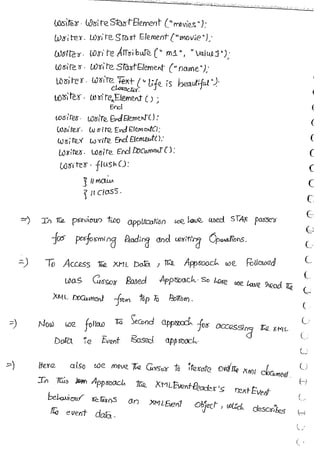 writer. writeStartElement ("movies");
writer. write Start Element ("movie");
writer. write Attribute (" ms", "value1");
writer. writeStartElement ("name");
writer. write Text ("Life is beautiful");
character
writer. write Element ( );
End
writer. write EndElement( );
writer. write End Element();
writer write End Element();
writer. write End Document ( );
writer. flush ( );
} // main
} // class.
=) In the previous two application we have used STAX parser
for performing Reading and writing Operations.
=) To Access the XML Data , the Approach we Followed
was Cursor Based Approach. So here we have read the
XML Document from top to Bottom.
=) Now we follow the Second approach for accessing the XML
Data ie Event Based approach.
=) Here also we move the Cursor to iterate over the XML document.
In this Approach the XMLEventReader's nextEvent
behaviour returns an XMLEvent object , which describes
the event data.